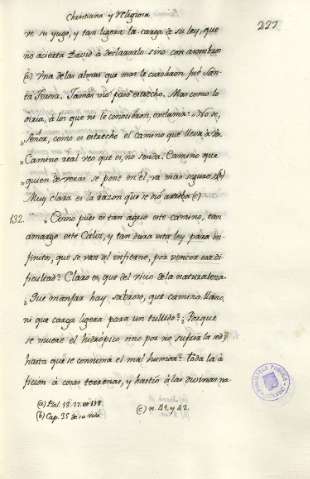 Christiana y Religiosa
227
ve su yugo, y tan ligera la carga de su ley, que
no acierta David à declararlo sino con asombro
(a) Una de las almas que mas le estudiaron fué San-
ta Teresa. Jamás vió paso estrecho. Mas como lo
oìa, à los que no le conocieron, exclama: No se,
Señor, como es estrecho el camino que lleva à Vos.
Camino real veo que es, no senda. Camino que
quien de veras se pone en èl, va mas seguro. (b)
Muy clara es la razon que se nos (c)
132. Como pues es tan agrio este camino, tan
amargo este Caliz, y tan dura esta ley para in-
finitos, que se van al infierno, por no vencer esa di-
ficultad? Claro es, que del vicio de la naturaleza.
¿Què manjar hay sabroso, què camino llano,
ni que carga ligera para un tullido? ¿Porque
se muere el hidròpico sino por no sufrir la sed
hasta que se consuma el mal humor? Toda la a-
ficion à cosas terrenas, y hastìo à las divinas na-
(a) Psal. 18.
(b) Cap. 35 de su vida.
(c) n. 41 y 42.